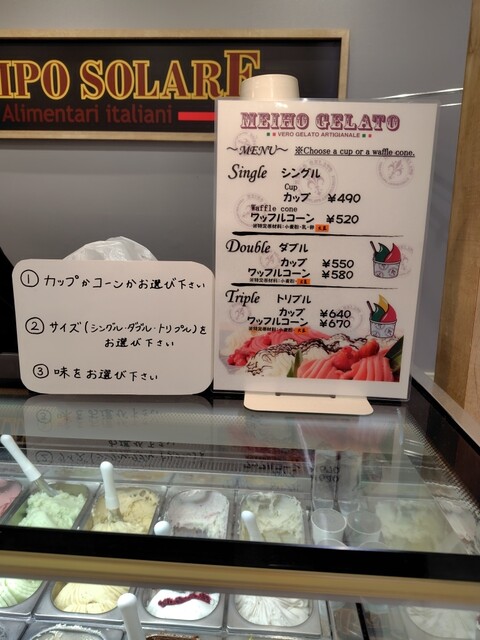 MPO SOLARE
Alimentari italiani
MEIHO GELATO
VERO GELATO ARTIGIANALE
～MENU～ ※Choose a cup or a waffle cone.
Single シングル
Cup
カップ ¥490
Waffle cone
ワッフルコーン ¥520
Double ダブル
カップ ¥550
ワッフルコーン ¥580
Triple トリプル
カップ ¥640
ワッフルコーン ¥670
① カップかコーンかお選び下さい
② サイズ(シングル・ダブル・トリプル)を
お選び下さい
③ 味をお選び下さい